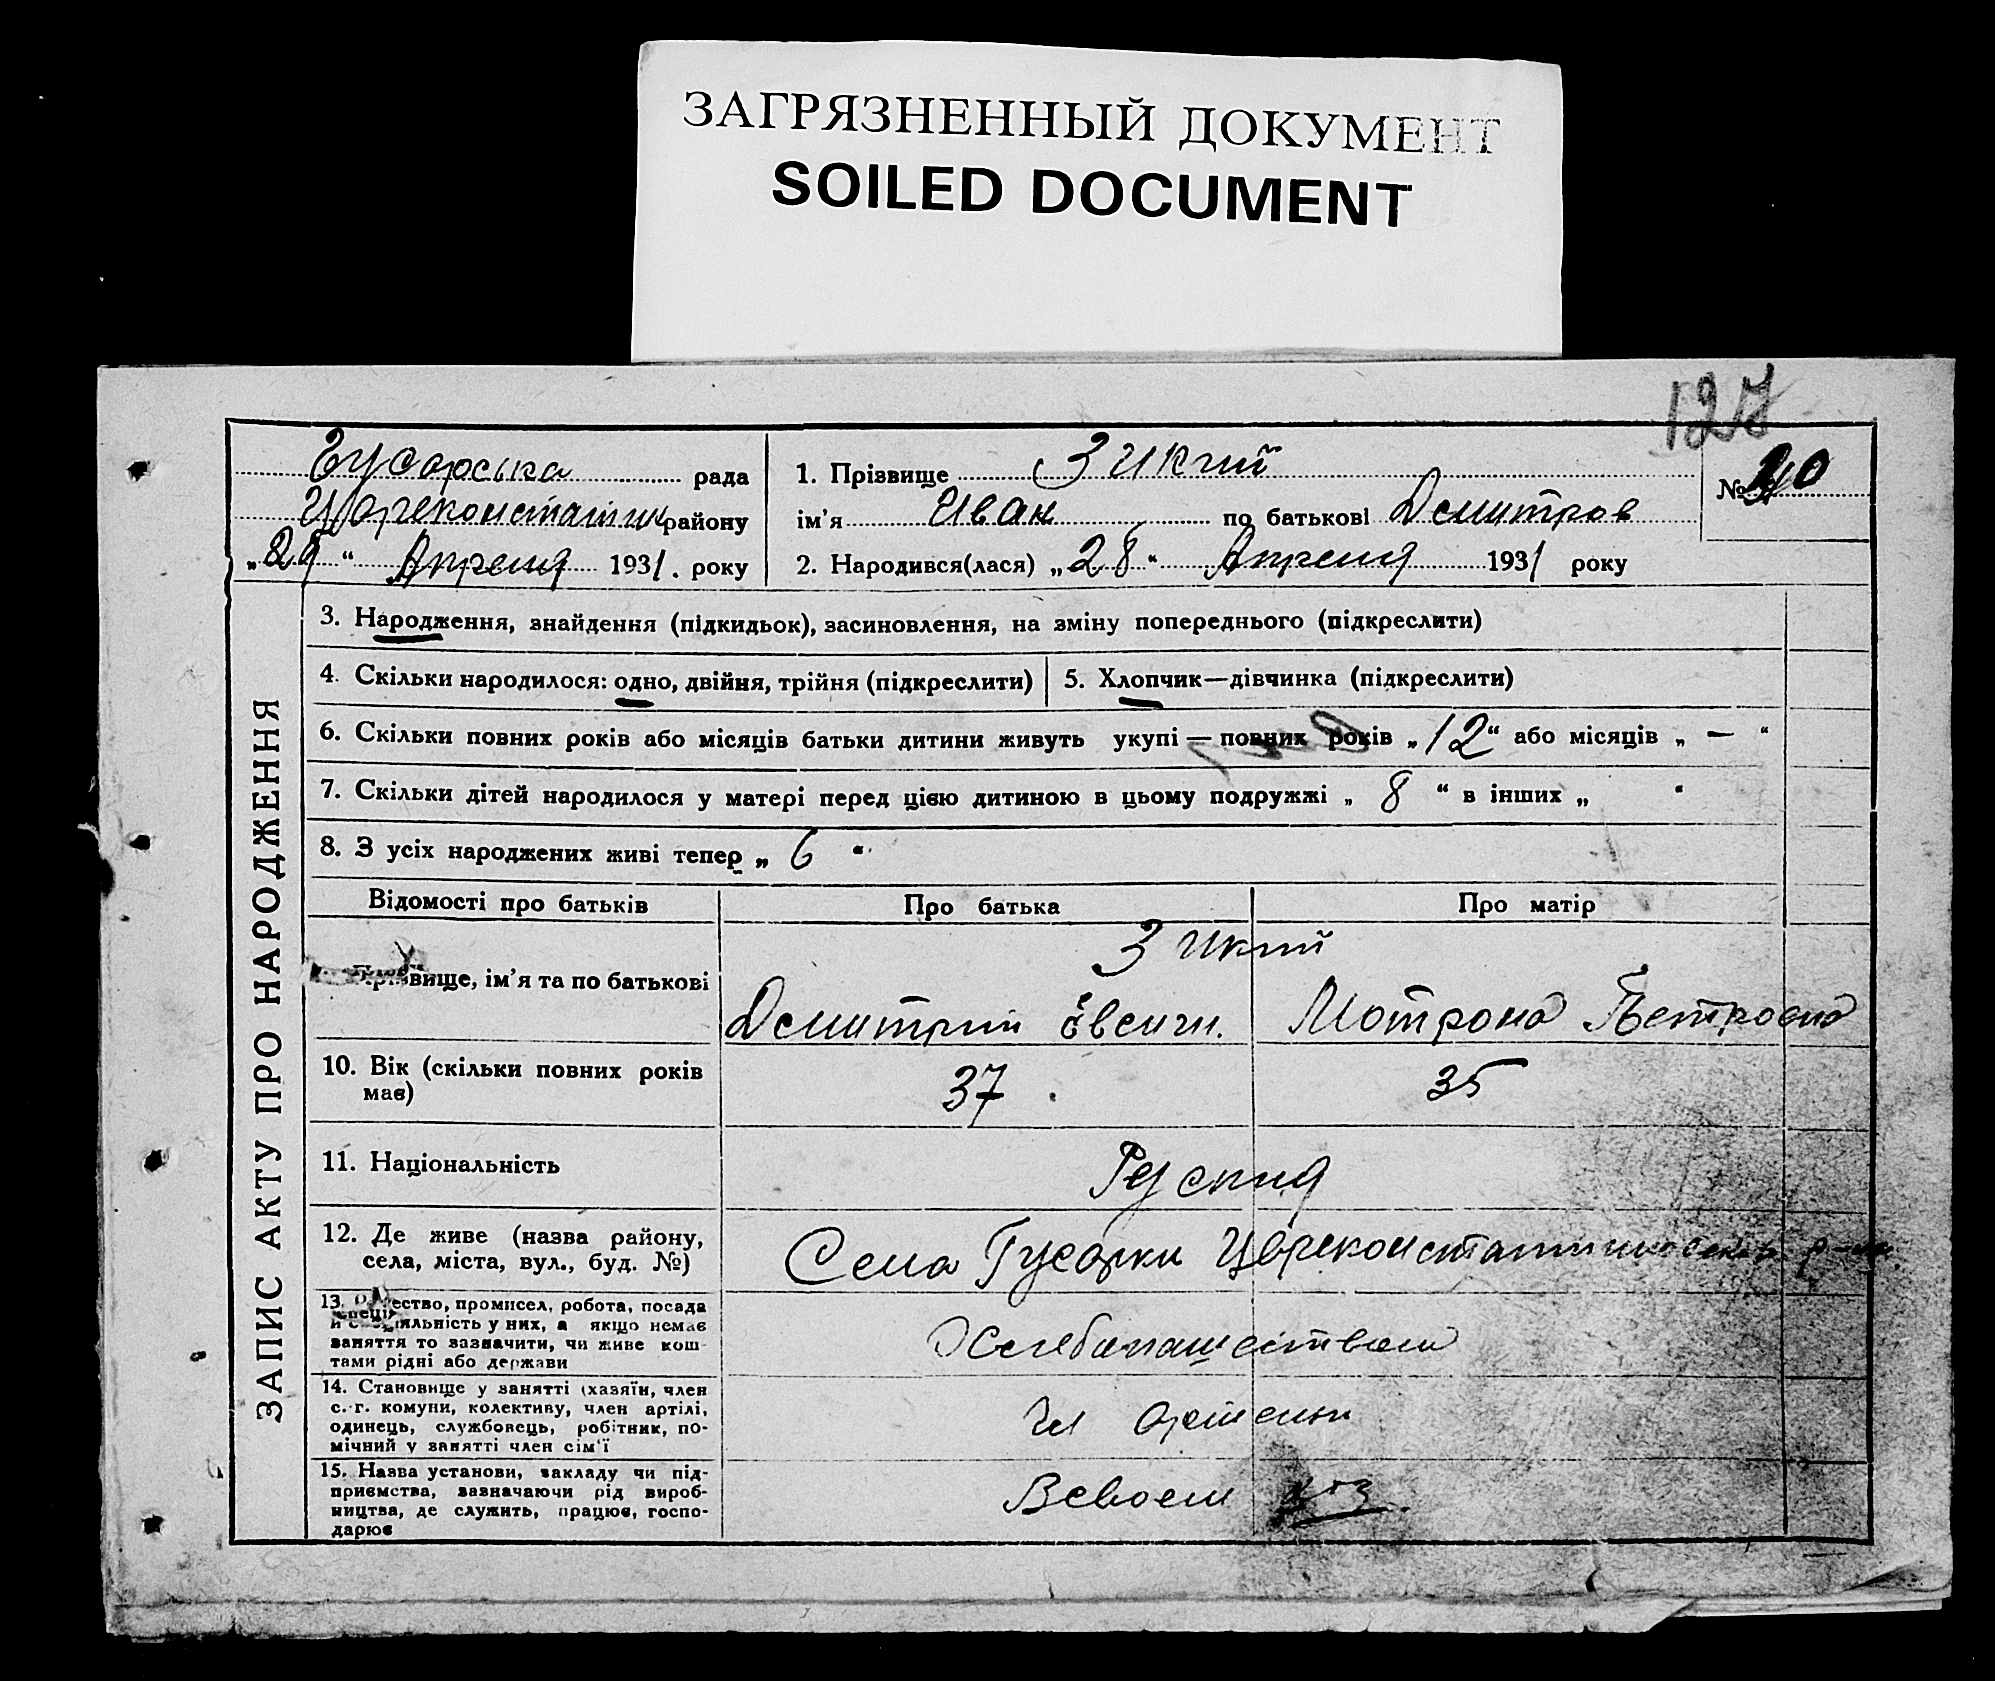 ЗАГРЯЗНЕННЫЙ ДОКУМЕНТ
SOILED DOCUMENT
127
Гусарська рада
Цареконстатин району
„29“ Апреля 1931. року
1. Прізвище Зикий
ім’я Иван по батькові Демитров
№ 20
2. Народився(лася) „28“ Апреля 1931 року
ЗАПИС АКТУ ПРО НАРОДЖЕННЯ
3. Народження, знайдення (підкидьок), засиновлення, на зміну попереднього (підкреслити)
4. Скільки народилося: одно, двійня, трійня (підкреслити)
5. Хлопчик—дівчинка (підкреслити)
6. Скільки повних років або місяців батьки дитини живуть укупі — повних років „12“ або місяців „ — “
7. Скільки дітей народилося у матері перед цією дитиною в цьому подружжі „ 8 “ в інших „ “
8. З усіх народжених живі тепер „ 6 “
Відомості про батьків
Про батька
Про матір
Прізвище, ім’я та по батькові
Зикий
Демитрий Евсигн.
Мотрона Петровна
10. Вік (скільки повних років
має)
37
35
11. Національність
Руския
12. Де живе (назва району,
села, міста, вул., буд. №)
Села Гусарки Цареконстатиновскова р-на
13. ество, промисел, робота, посада
й спеціяльність у них, а якщо немає
заняття то зазначити, чи живе кош-
тами рідні або держави
Хлебапашеством
14. Становище у занятті (хазяїн, член
с.-г. комуни, колективу, член артілі,
одинець, службовець, робітник, по-
мічний у занятті член сім’ї
Чл Артели
15. Назва установи, закладу чи під-
приємства, зазначаючи рід вироб-
ництва, де служить, працює, госпо-
дарює
Всвоем хоз.